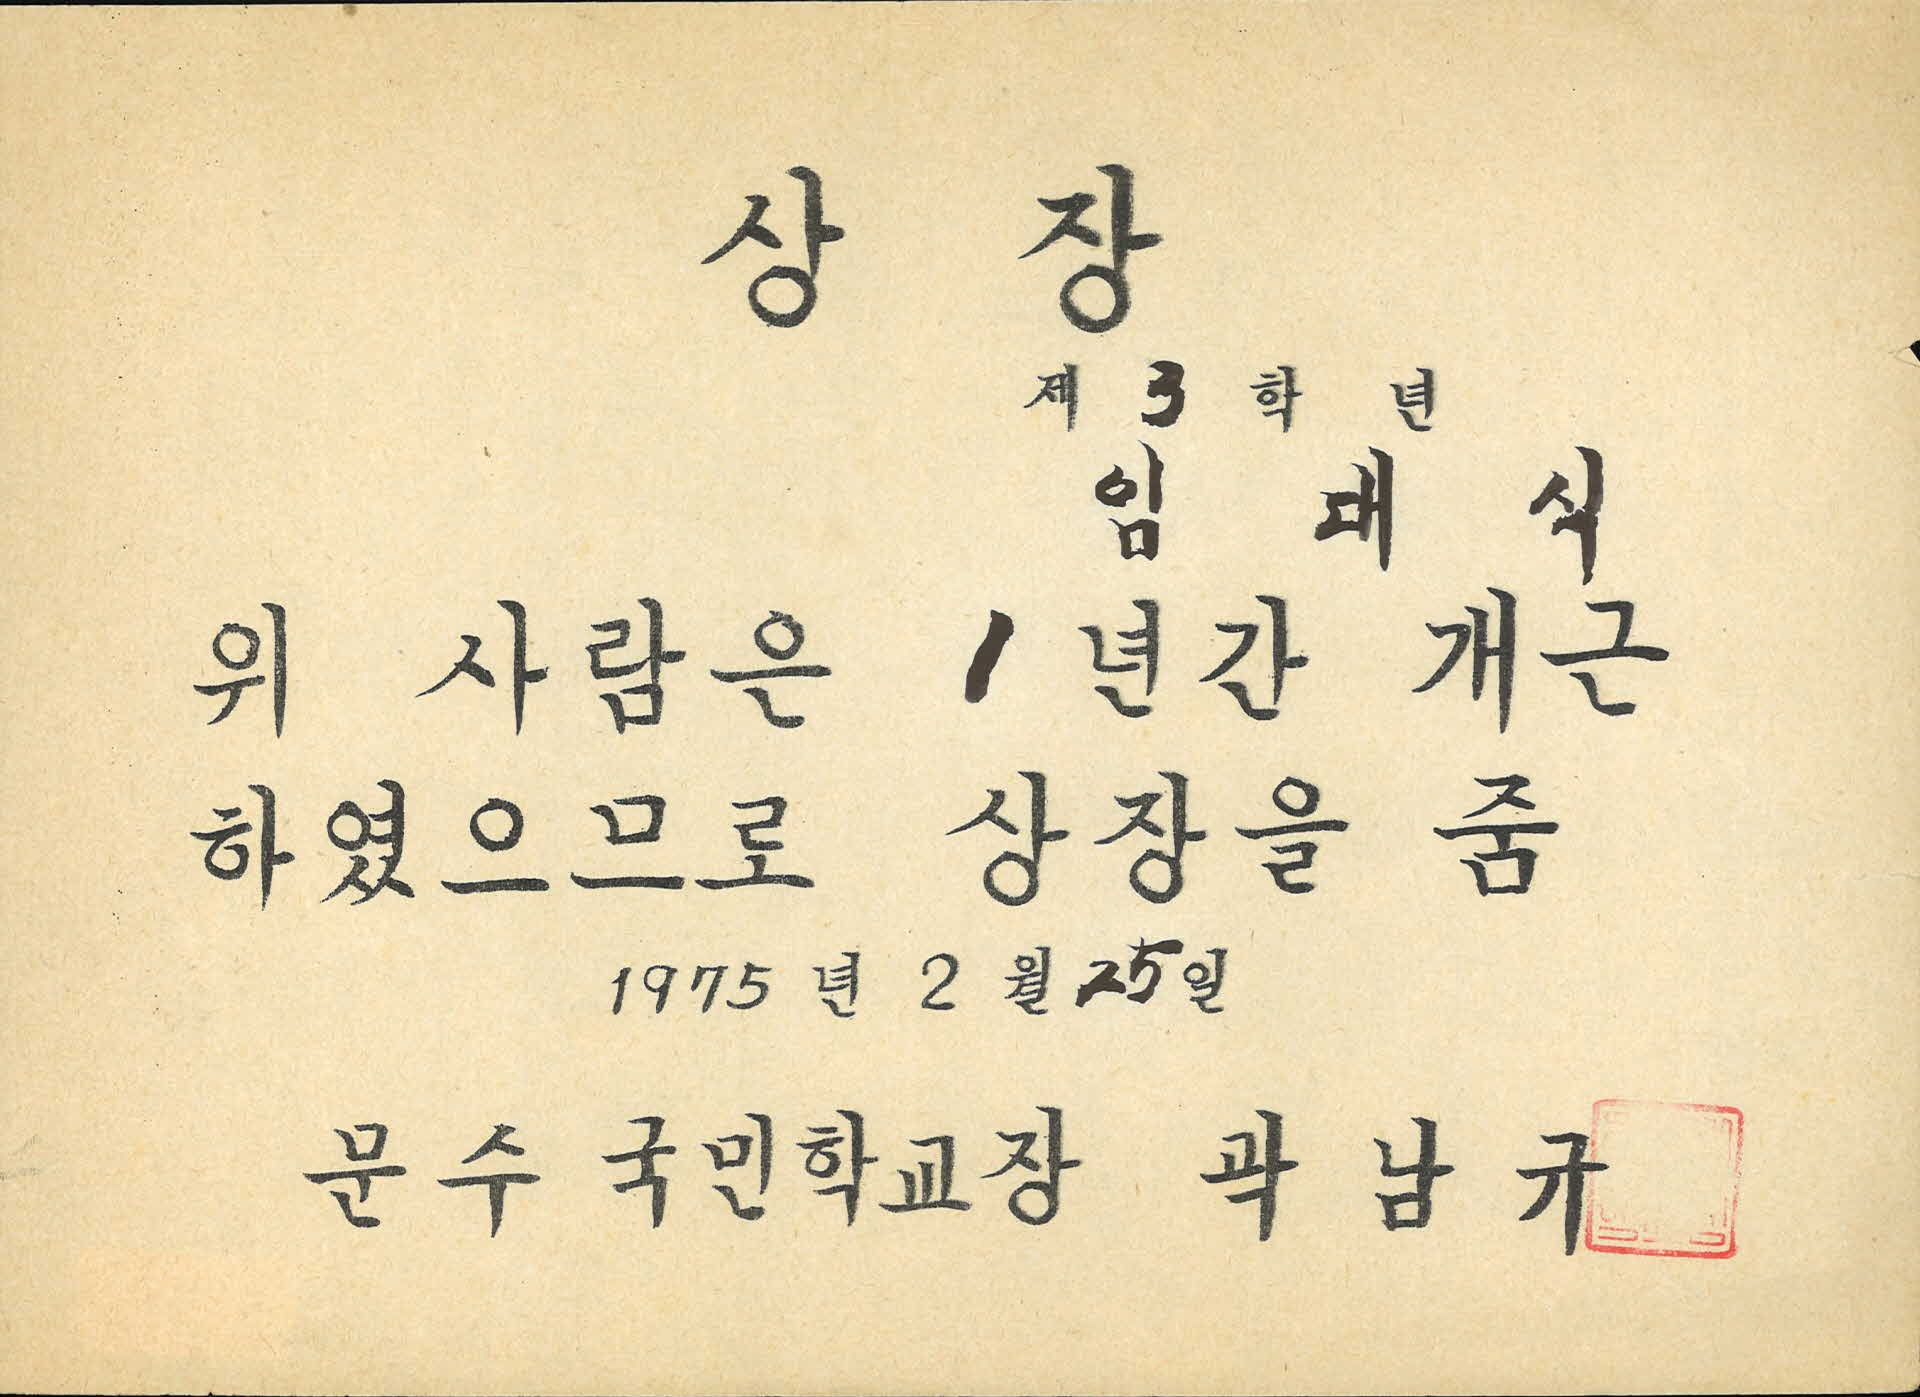 상 장
제 3 학 년
임 대 식
위 사람은 1 년간 개근
하였으므로 상장을 줌
1975 년 2 월 25 일
문수 국민학교장 곽남규